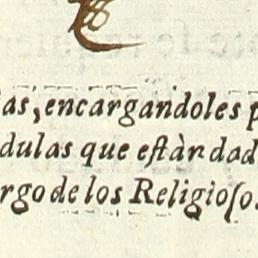 as, encargandoles p
dulas que eſtàn dad
rgo de los Religioſo.